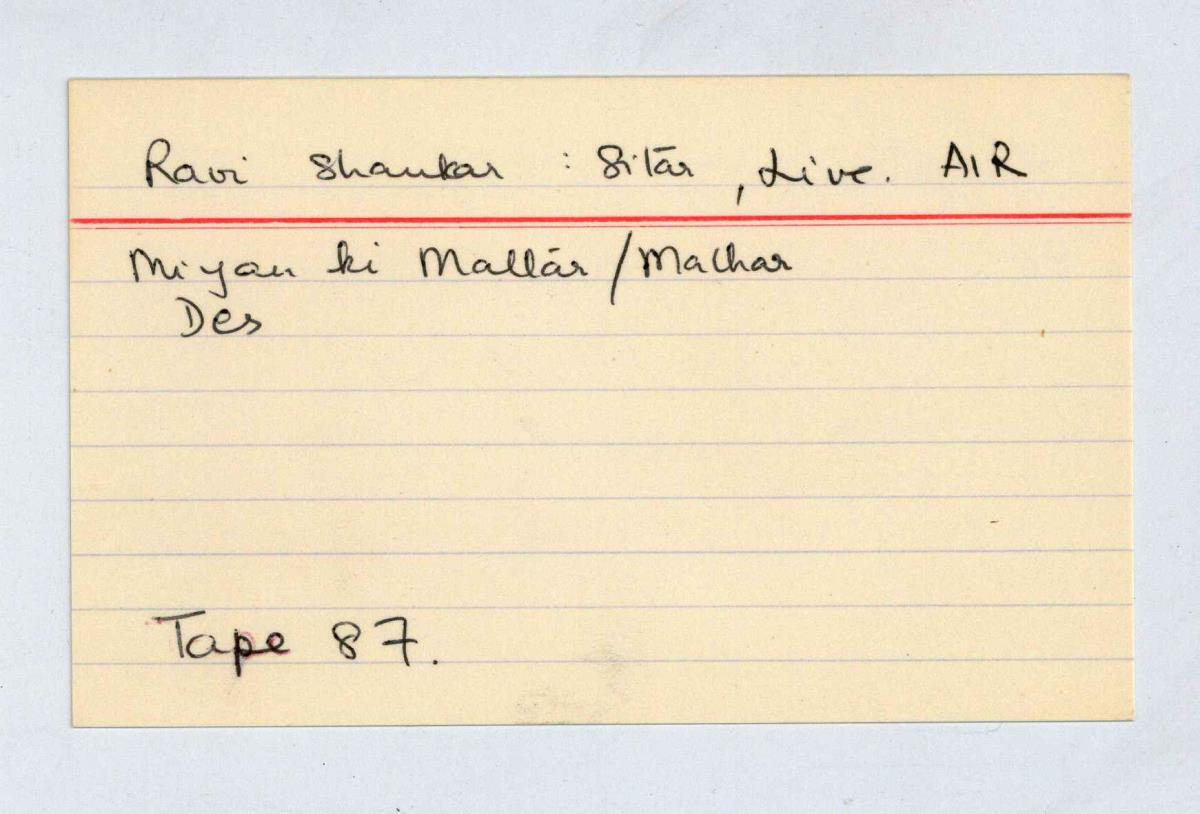 Ravi Shankar : Sitār, Live. AIR
Miyan ki Mallār / Malhar
Des
Tape 87.